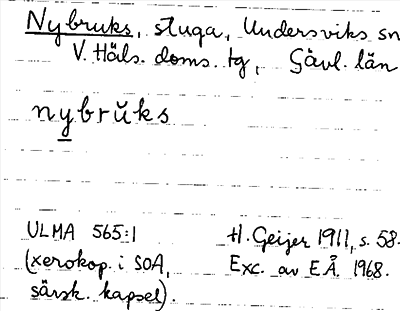 Nybruks, stuga, Undersviks sn
V. Häls. doms. tg, Gävl. län
nybrŭks
ULMA 565:1
(xerokop. i SOA,
särsk. kapsel).
H. Geijer 1911, s. 58.
Exc. av E Å. 1968.